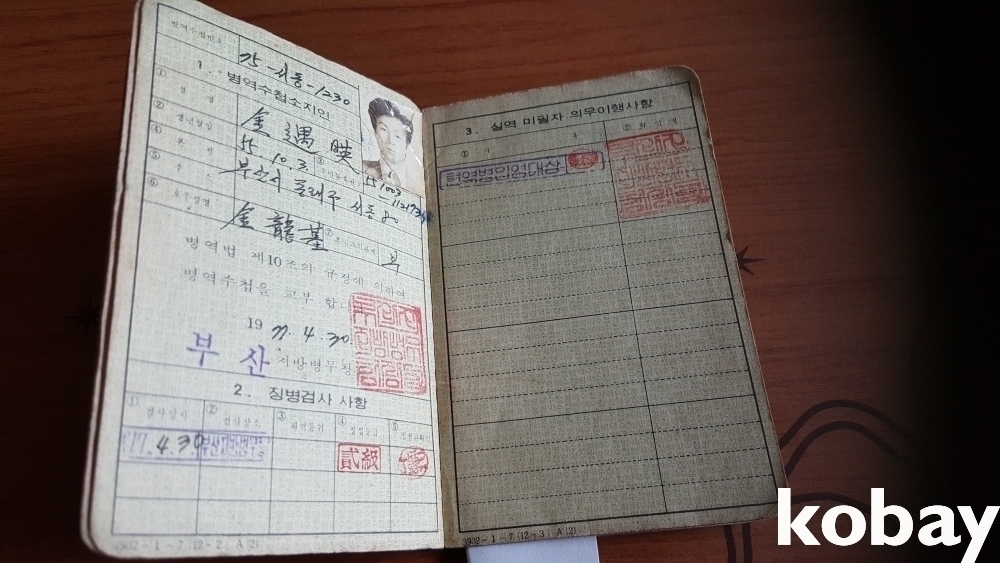 병역수첩번호
75-서동-1230
1. 병역수첩소지인
① 성 명
金 遇 暎
② 생년월일
55. 10. 3.
③
④ 본 적
⑤ 주 소
부산시 동래구 서동 80
⑥ 호주성명
金 龍 基
⑦
부
병역법 제10조의 규정에 의하여
병역수첩을 교부 합
19 77. 4. 30
부 산 지방병무청
2. 징병검사 사항
① 검사일자
② 검사장소
③
④ 징집등급
⑤
77. 4. 30
부산지방병무청
貳級
3902-1-7 (12-2) A(2)
3. 실역 미필자 의무이행사항
①
②
현역병입영대상
3902-1-7 (12-3) A(2)
kobay